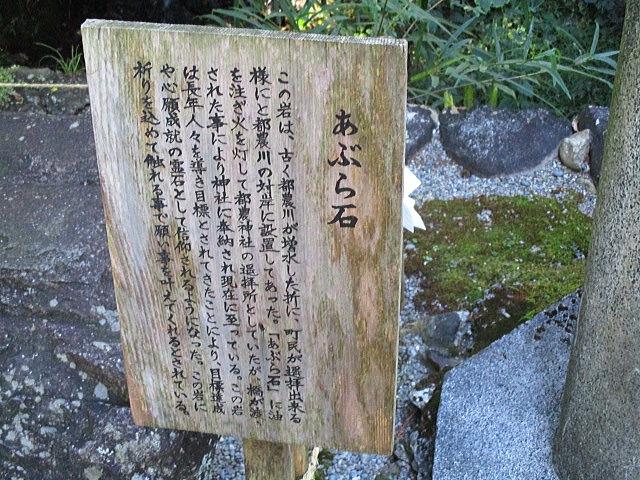 あぶら石
この岩は、古く都農川が増水した折に、町民が遥拝出来る
様にと都農川の対岸に設置してあった。「あぶら石」に油
を注ぎ火を灯して都農神社の遥拝所としていたが、橋が
された事により神社に奉納され現在に至っている。この岩
は長年人々を導き目標とされてきたことにより、目標達成
や心願成就の霊石として信仰されるようになった。この岩に
祈りを込めて触れる事で願い事を叶えてくれるとされている。